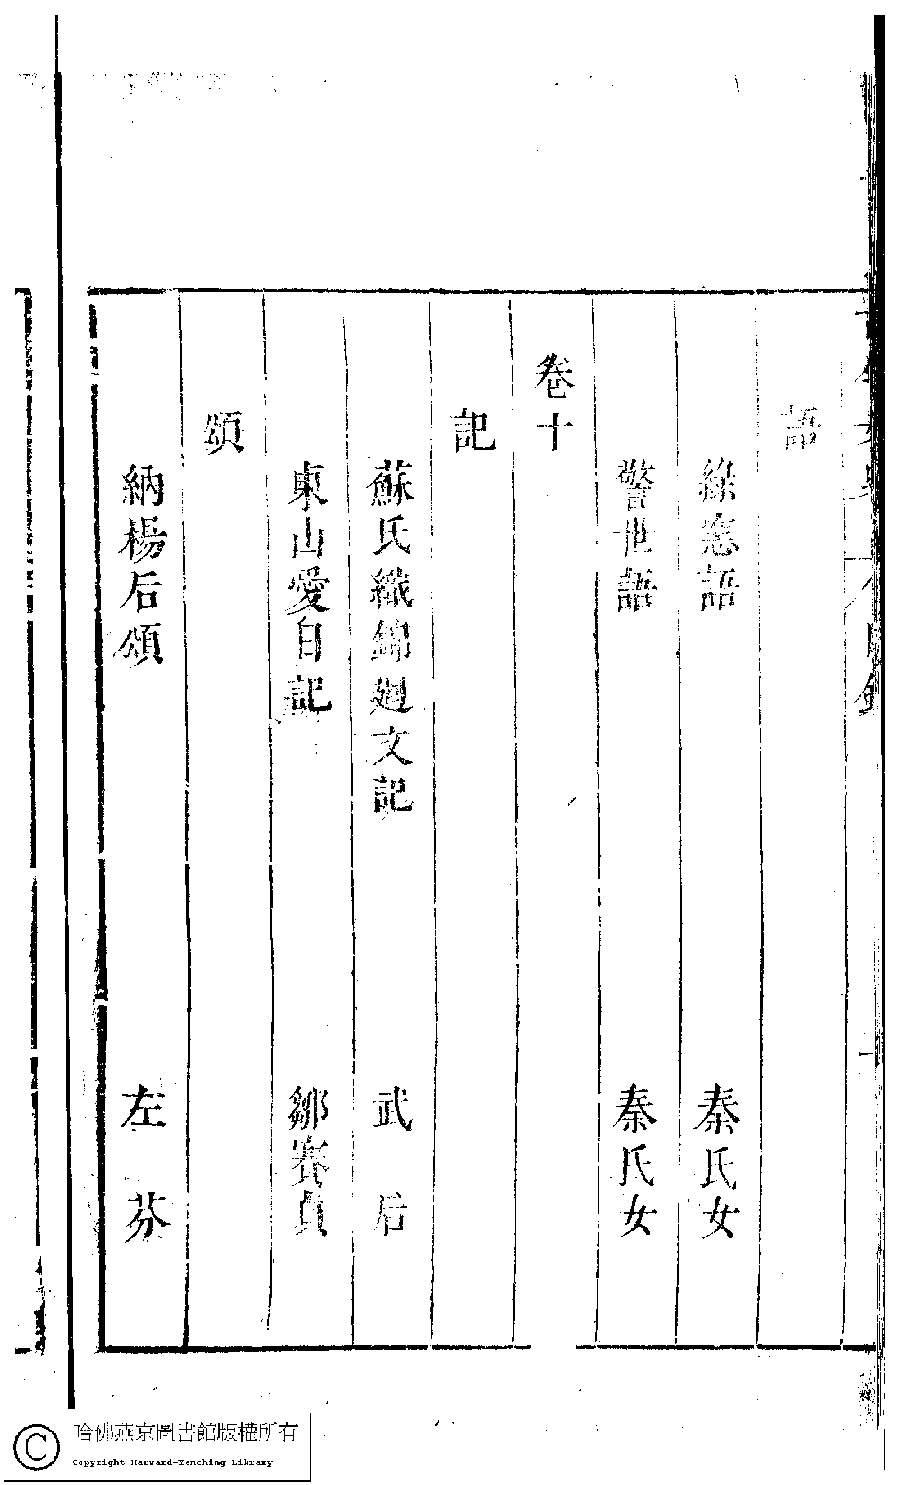 語
綠窓語 秦氏女
警世語 秦氏女
卷十
記
蘇氏織錦廻文記 武后
東山愛日記 鄒賽貞
頌
納楊后頌 左芬
哈佛燕京圖書館版權所有
Copyright Harvard-Yenching Library